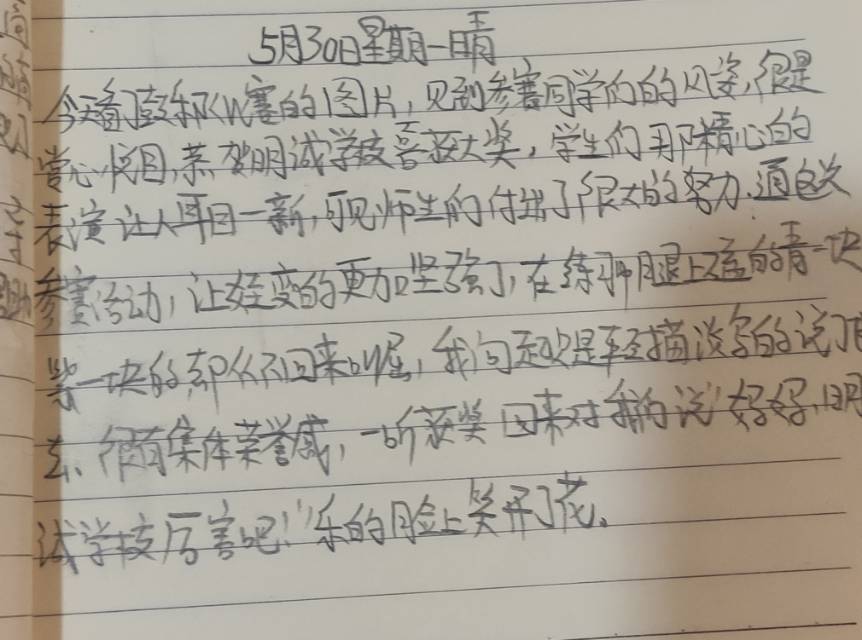 5月30日星期一晴
今天看了鼓乐队比赛的图片,见到参赛同学们的的风姿,很是
赏心悦目,恭贺明诚学校喜获大奖,学生们那精心的
表演让人耳目一新,可见师生们付出了很大的努力.通过次
参赛活动,让娃变的更加坚强了,在练习腿上磕的青一块
紫一块的却从不回来叫屈,我问起她是轻描淡写的说了
去、很有集体荣誉感,一听获奖回来对我们说"妈妈,明
诚学校厉害吧!"乐的脸上笑开了花。